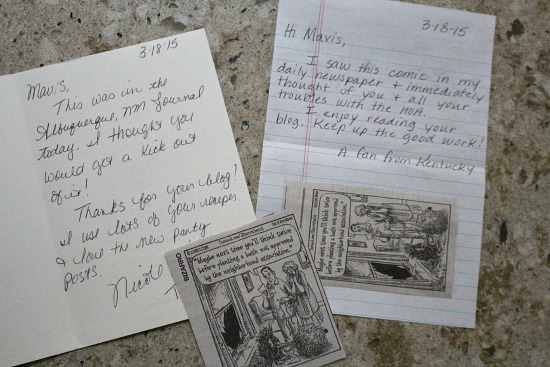 3-18-15
Mavis,
This was in the
Albuquerque, NM Journal
today. I thought you
would get a kick out
of it!
Thanks for your blog!
I use lots of your recipes
& love the new pantry
posts.
Nicole
3-18-15
Hi Mavis,
I saw this comic in my
daily newspaper + immediately
thought of you + all your
troubles with the HOA.
I enjoy reading your
blog. Keep up the good work!
A fan from Kentucky
"Maybe next time you'll think twice
before planting a bush not approved
by the neighborhood association."
BIZARRO
"Maybe next time you'll think twice
before planting a bush not approved
by the neighborhood association."